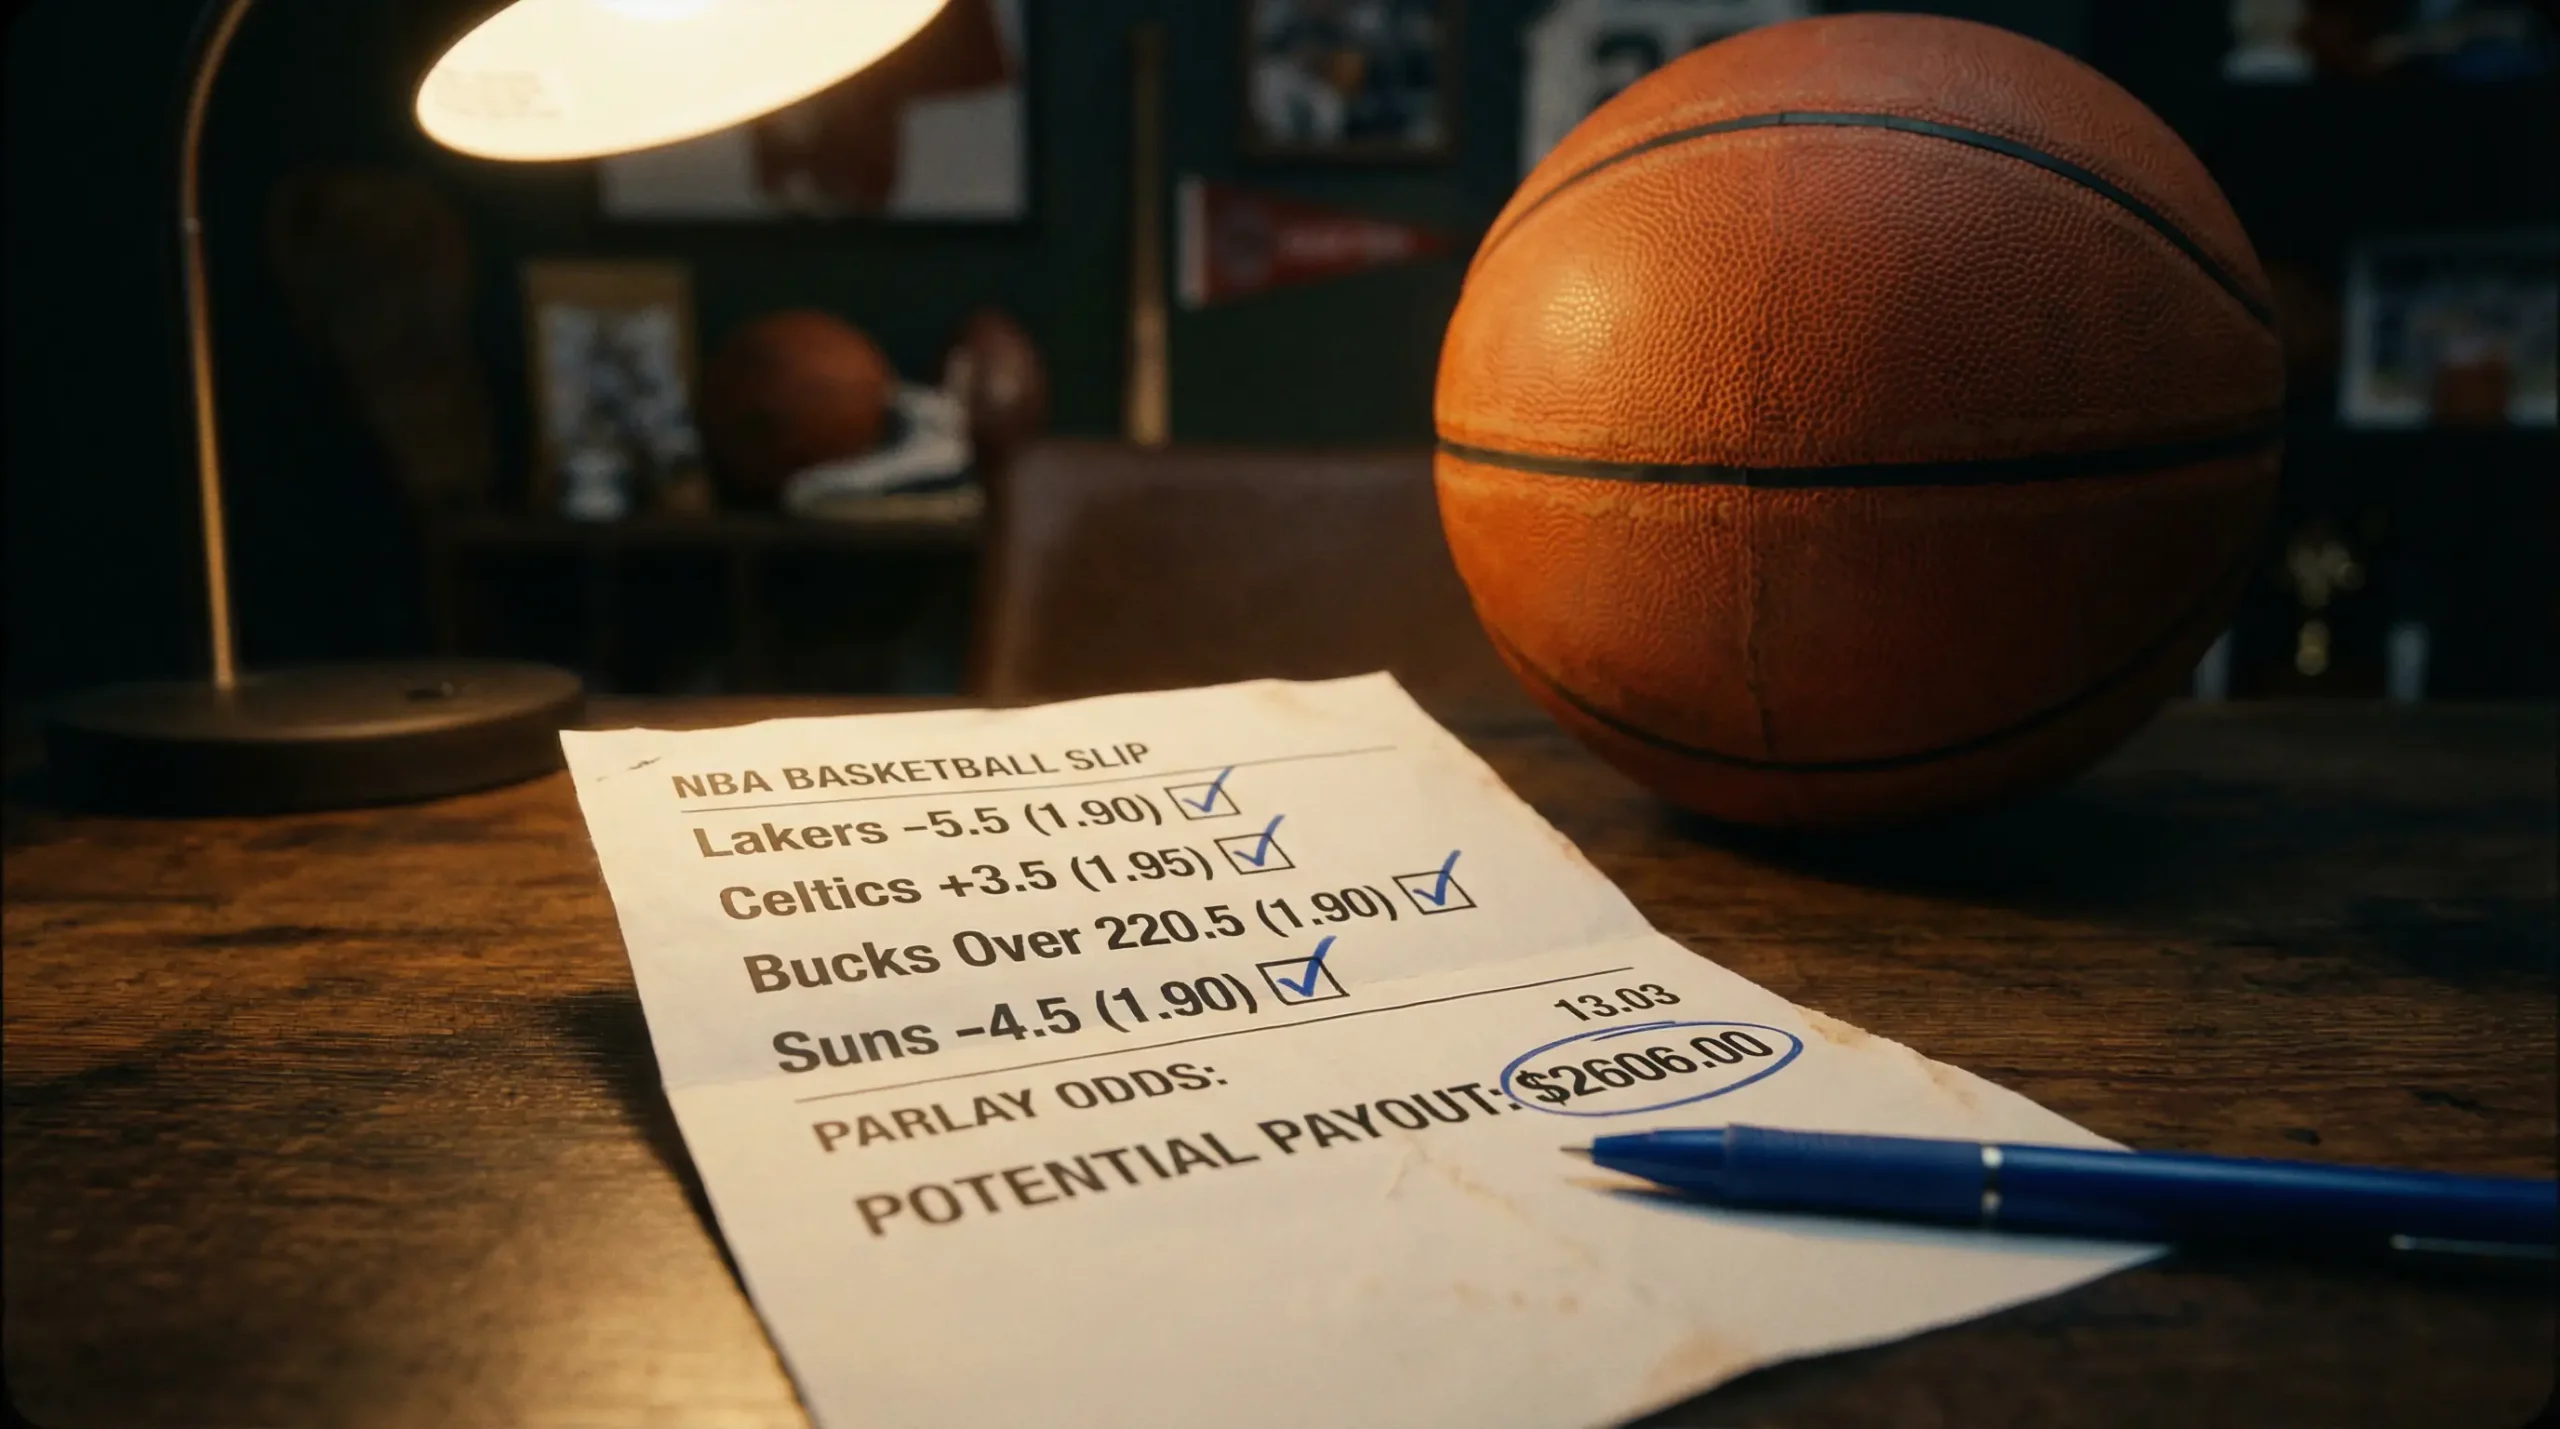 NBA BASKETBALL SLIP
Lakers –5.5 (1.90)
Celtics +3.5 (1.95)
Bucks Over 220.5 (1.90)
Suns –4.5 (1.90)
PARLAY ODDS: 13.03
POTENTIAL PAYOUT: $2606.00